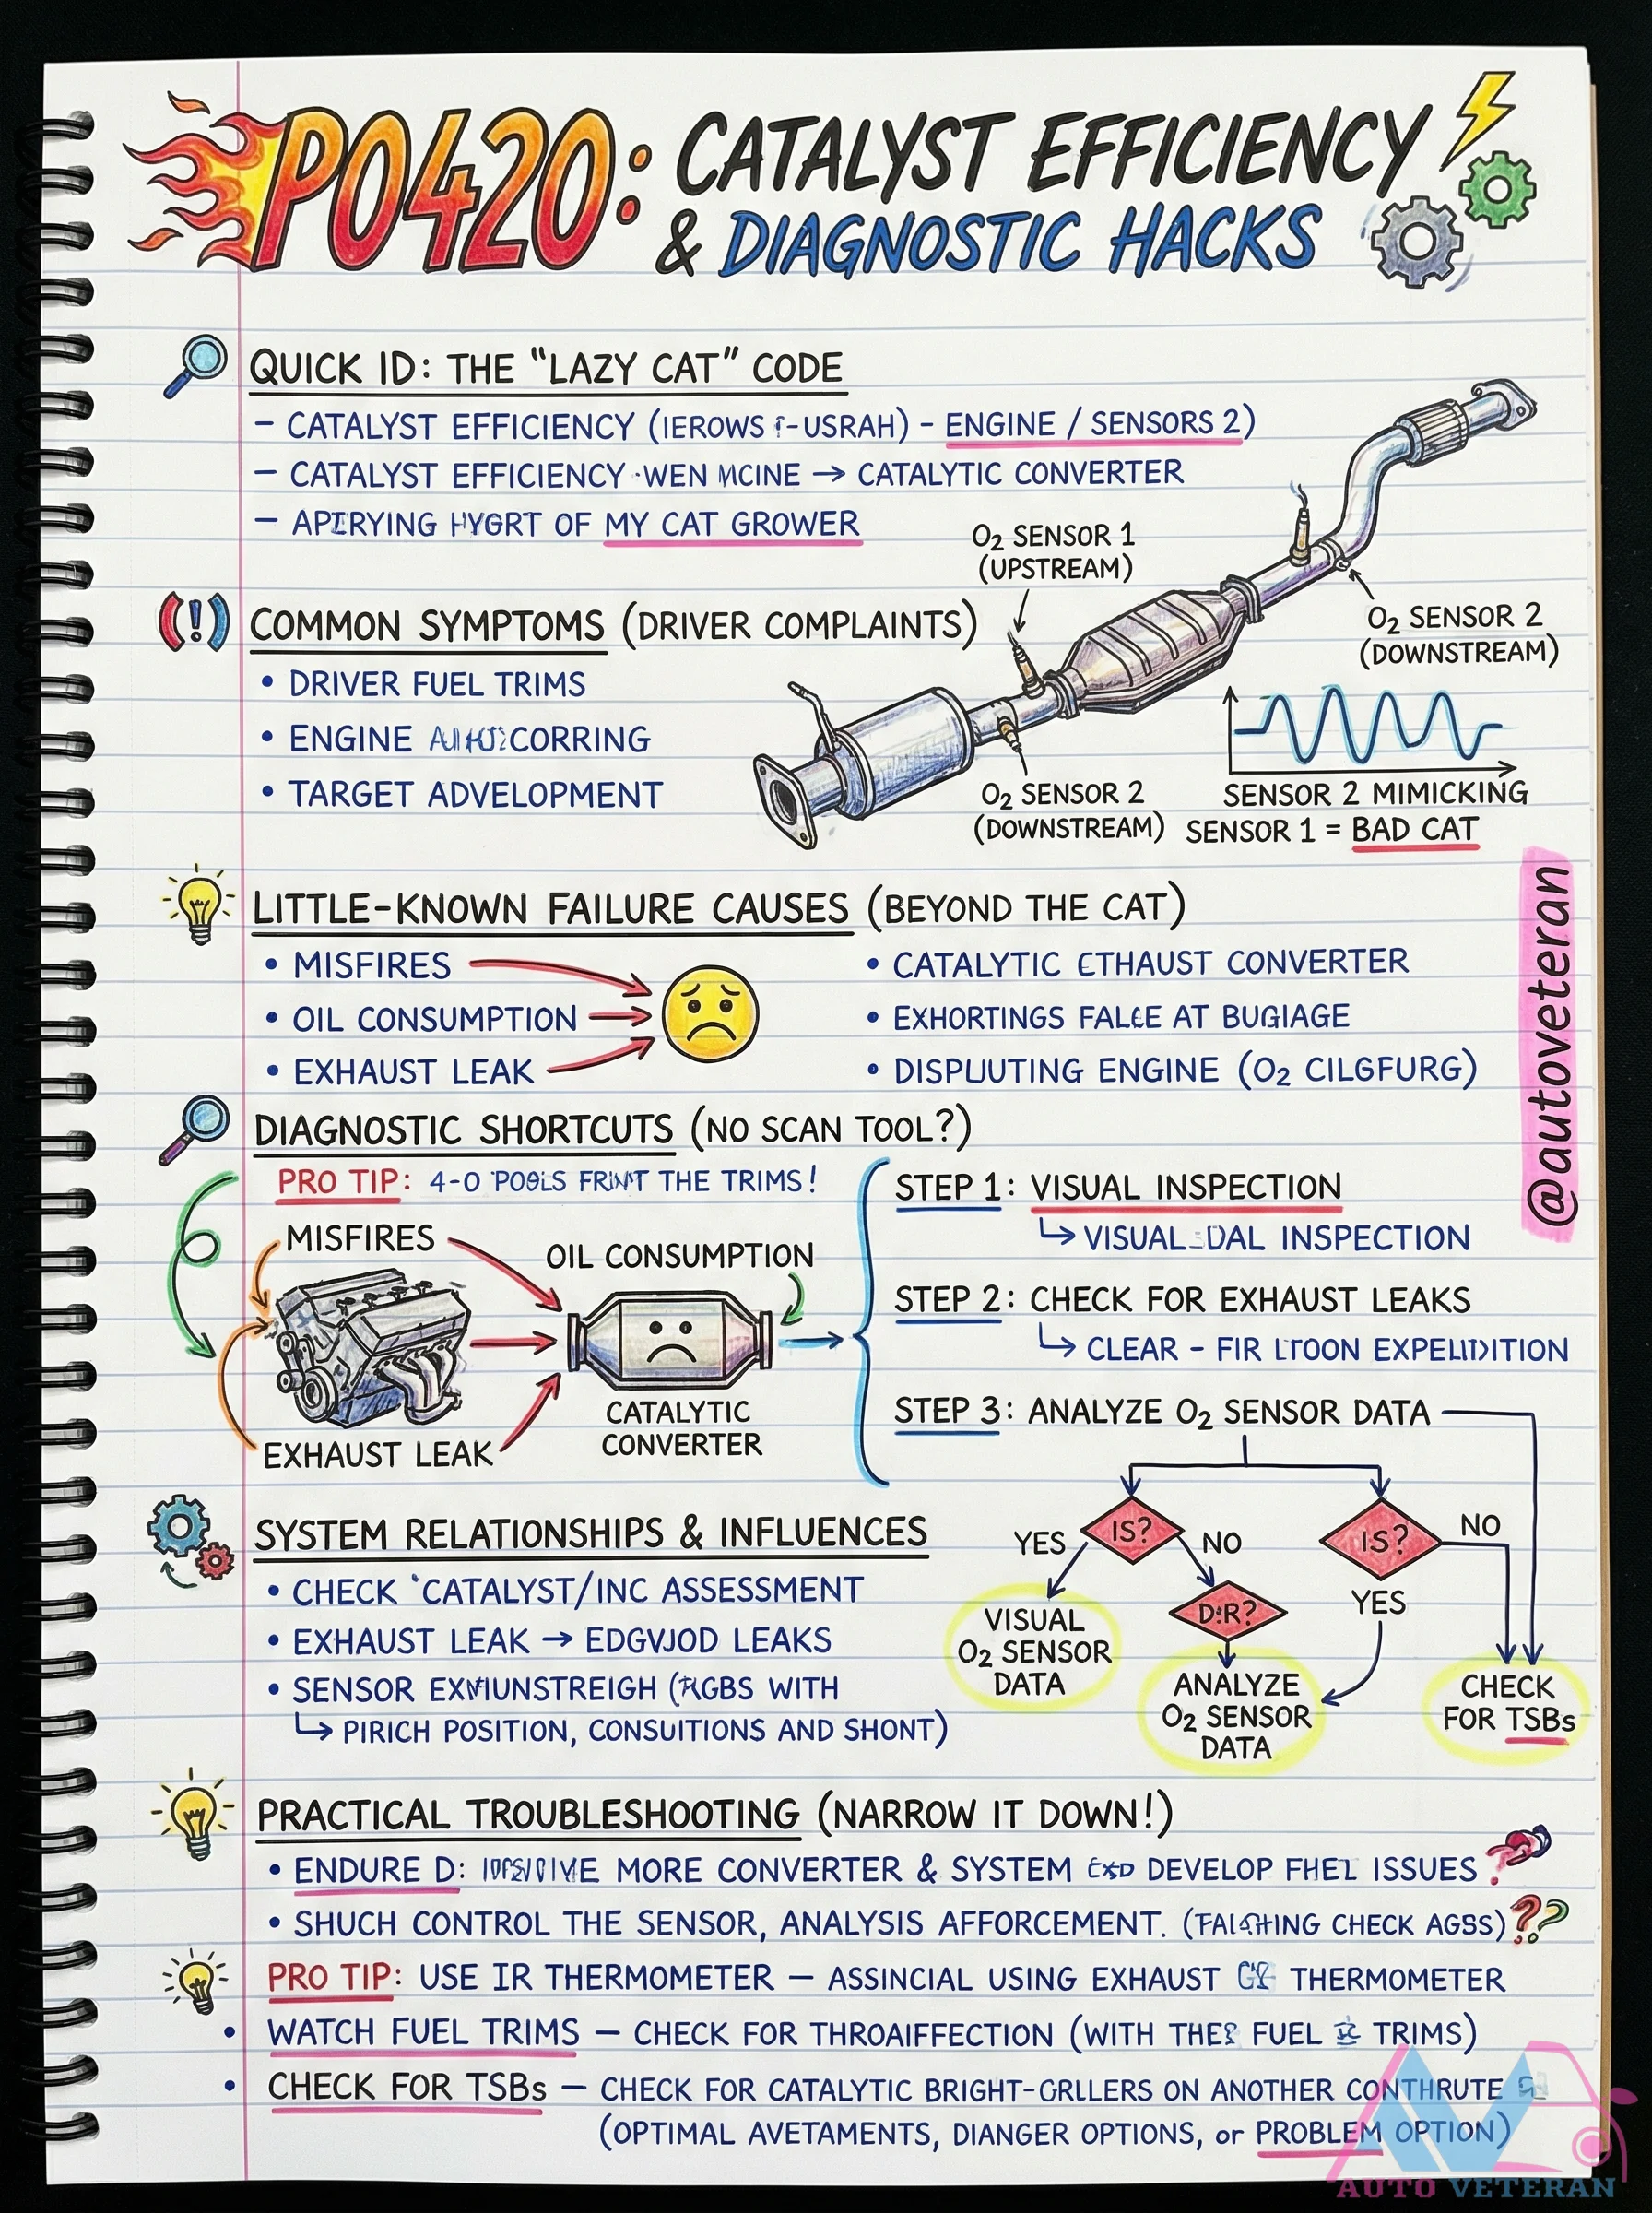 P0420: CATALYST EFFICIENCY
& DIAGNOSTIC HACKS
QUICK ID: THE "LAZY CAT" CODE
– CATALYST EFFICIENCY (IEROWS -USRAH) – ENGINE / SENSORS 2)
– CATALYST EFFICIENCY ·WEN MCINE → CATALYTIC CONVERTER
– APIRYING HYGRT OF MY CAT GROWER
O₂ SENSOR 1
(UPSTREAM)
O₂ SENSOR 2
(DOWNSTREAM)
COMMON SYMPTOMS (DRIVER COMPLAINTS)
• DRIVER FUEL TRIMS
• ENGINE CORRING
• TARGET ADVELOPMENT
O₂ SENSOR 2
(DOWNSTREAM)
SENSOR 2 MIMICKING
SENSOR 1 = BAD CAT
@autoveteran
LITTLE-KNOWN FAILURE CAUSES (BEYOND THE CAT)
• MISFIRES
• OIL CONSUMPTION
• EXHAUST LEAK
• CATALYTIC CTHAUST CONVERTER
• EXHORTINGS FALCE AT BUGIAGE
• DISPUUTING ENGINE (O₂ CILGFURG)
DIAGNOSTIC SHORTCUTS (NO SCAN TOOL?)
PRO TIP: 4-0 THE TRIMS!
MISFIRES
OIL CONSUMPTION
EXHAUST LEAK
CATALYTIC
CONVERTER
STEP 1: VISUAL INSPECTION
↳ VISUAL INSPECTION
STEP 2: CHECK FOR EXHAUST LEAKS
↳ CLEAR – FIR LTOON
STEP 3: ANALYZE O₂ SENSOR DATA
IS?
YES
NO
IS?
NO
YES
D:R?
VISUAL
O₂ SENSOR
DATA
ANALYZE
O₂ SENSOR
DATA
CHECK
FOR TSBs
SYSTEM RELATIONSHIPS & INFLUENCES
• CHECK 'CATALYST/INC ASSESSMENT
• EXHAUST LEAK → EDGVJOD LEAKS
• SENSOR WITH
↳ PIRICH POSITION, CONSUITIONS AND SHONT)
PRACTICAL TROUBLESHOOTING (NARROW IT DOWN!)
• ENDURE D: MORE CONVERTER & SYSTEM DEVELOP FHEL ISSUES ?
• SHUCH CONTROL THE SENSOR, ANALYSIS AFFORCEMENT. CHECK AGSS) ??
PRO TIP: USE IR THERMOMETER – ASSINCIAL USING EXHAUST THERMOMETER
• WATCH FUEL TRIMS – CHECK FOR THROAIFFECTION (WITH FUEL TRIMS)
• CHECK FOR TSBs – CHECK FOR CATALYTIC BRIGHT-GRLLERS ON ANOTHER CONTHRUTE
(OPTIMAL AVETAMENTS, DIANGER OPTIONS, or PROBLEM OPTION)
AV
AUTO VETERAN